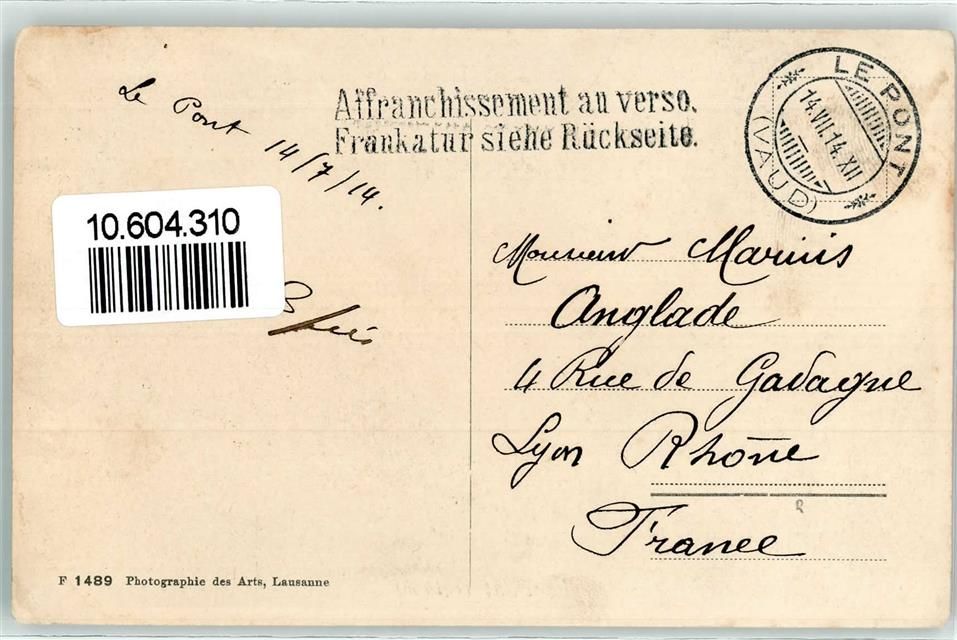 Le Pont 14/7/14.
Affranchissement au verso.
Frankatur siehe Rückseite.
LE PONT
14.VII.14.XII
(VAUD)
10.604.310
Monsieur Marius
Anglade
4 Rue de Gadagne
Lyon Rhône
France
F 1489 Photographie des Arts, Lausanne